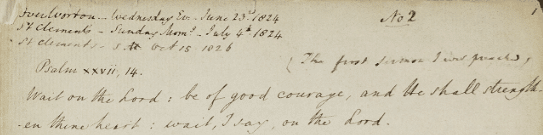 Over Worton - Wednesday Ev. - June 23d 1824
No 2
1
St Clements - Sunday Morng. - July 4th 1824
- St Clements - Oct 15 1826
(The first sermon I ever preached)
Psalm xxvii, 14.
Wait on the Lord: be of good courage, and He shall strength-
-en thine heart: wait, I say, on the Lord.